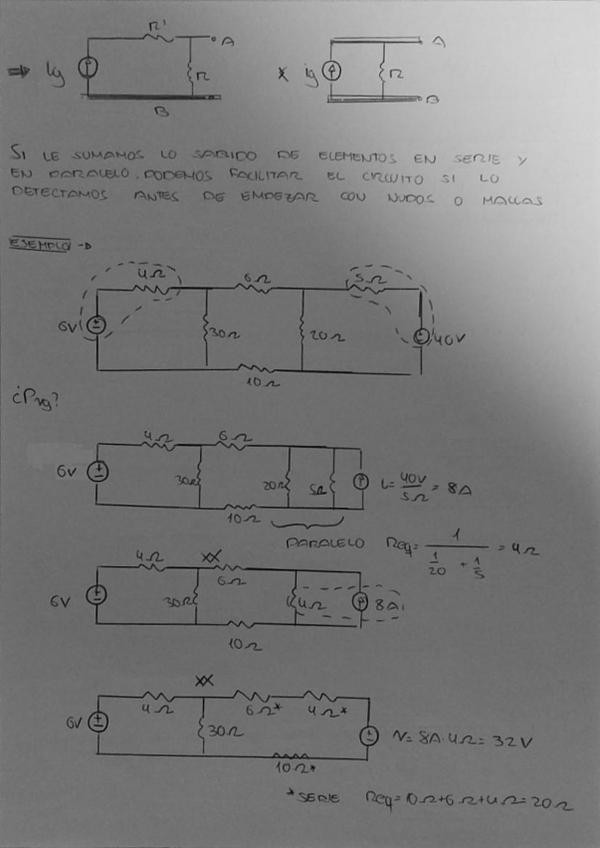 R' A
⇒ ig R
B
* ig R A
B
SI LE SUMAMOS LO SABIDO DE ELEMENTOS EN SERIE Y
EN PARALELO, PODEMOS FACILITAR EL CIRCUITO SI LO
DETECTAMOS ANTES DE EMPEZAR CON NUDOS O MALLAS
EJEMPLO →
4Ω 6Ω 5Ω
6V 30Ω 20Ω 40V
10Ω
¿Pvg?
4Ω 6Ω
6V 30Ω 20Ω 5Ω i=40V/5Ω = 8A
10Ω
PARALELO Req= 1/(1/20 + 1/5) = 4Ω
4Ω ** 6Ω
6V 30Ω 4Ω 8A
10Ω
**
4Ω 6Ω* 4Ω*
6V 30Ω V= 8A·4Ω= 32V
10Ω*
*SERIE Req= 10Ω+6Ω+4Ω= 20Ω